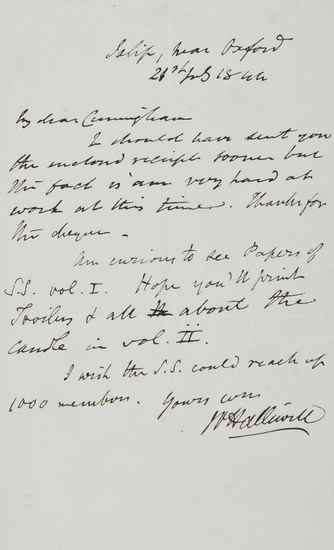 Islip, near Oxford
26th July 1844
My dear Cunningham
I should have sent you
the enclosed receipt sooner but
the fact is am very hard at
work at this time. Thanks for
the cheque -
Am curious to see Papers of
S.S. vol. I. Hope you'll print
Troilus & all about the
candle in vol. ii.
I wish the S.S. could reach up
1000 members. Yours
JOHalliwell